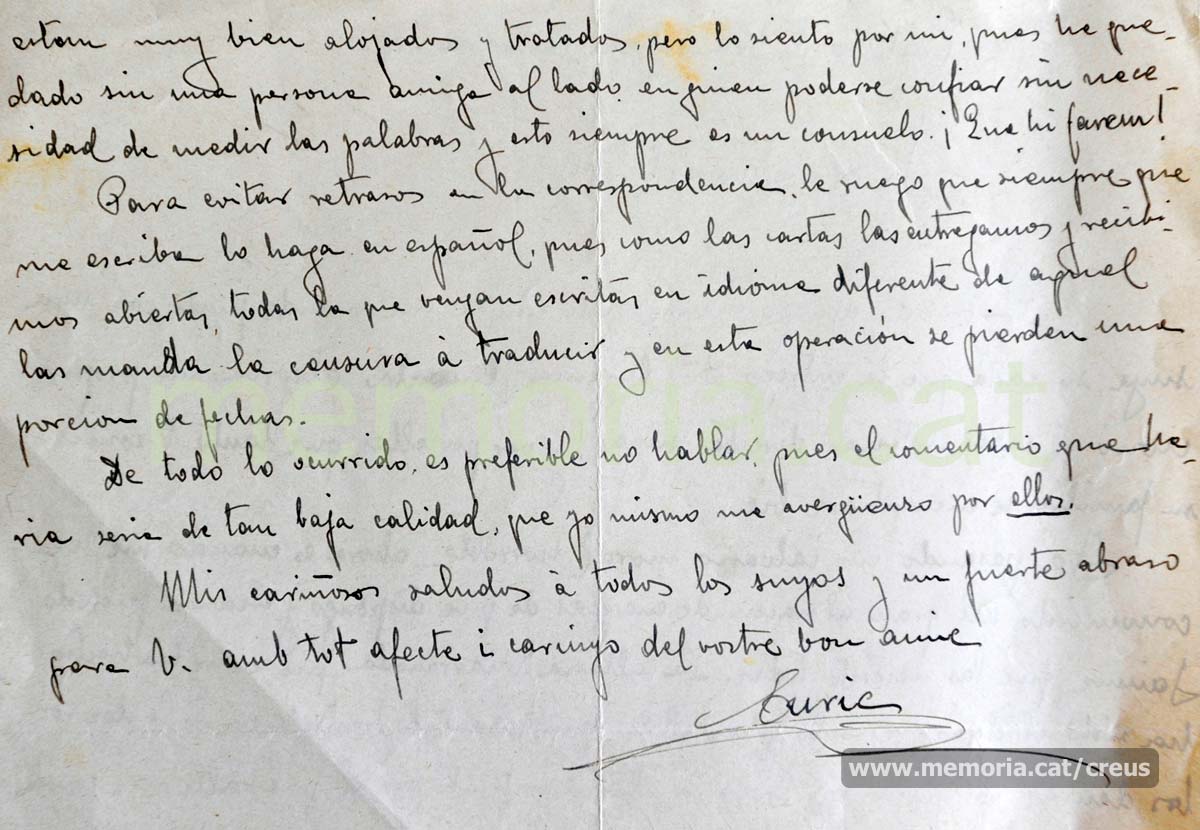 estam muy bien alojados y tratados, pero lo siento por mi, pues he que-
dado sin una persona amiga al lado en quien poderse confiar sin nece-
sidad de medir las palabras y esto siempre es un consuelo. ¡Que hi farem!
Para evitar retrasos en la correspondencia, le ruego que siempre que
me escriba lo haga en español, pues como las cartas las entregamos y recibi-
mos abiertas, todas la que vengan escritas en idioma diferente de aquel
las manda la censura à traducir y en esta operación se pierden una
porcion de fechas.
De todo lo ocurrido, es preferible no hablar, pues el comentario que ha-
ria seria de tan baja calidad, que yo mismo me avergüenzo por ellos.
Mis cariñosos saludos à todos los suyos y un fuerte abraso
para V. amb tot afecte i carinyo del vostre bon amic
Enric
memoria.cat
www.memoria.cat/creus